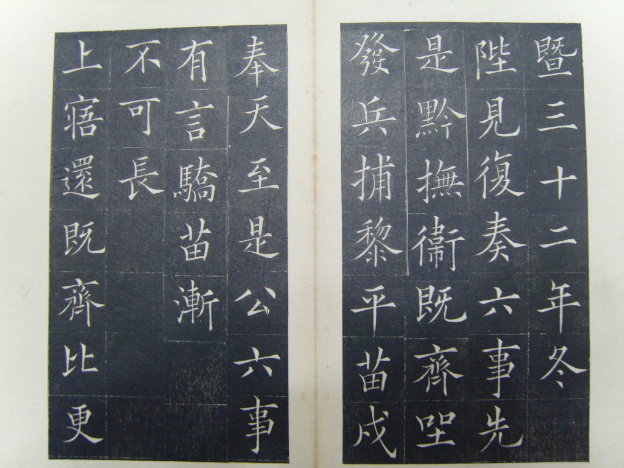 暨三十二年冬
陛見復奏六事先
是黔撫衞既齊坐
發兵捕黎平苗戍
奉天至是公六事
有言驕苗漸
不可長
上寤還既齊比更